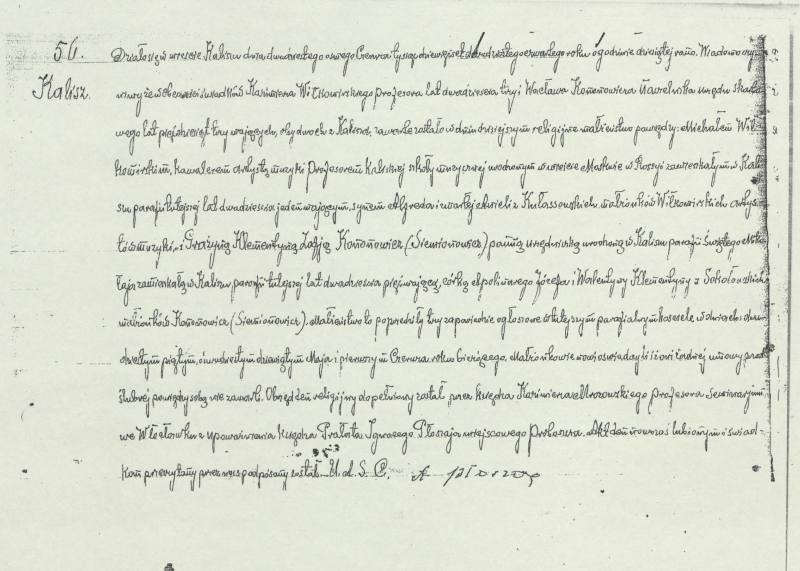 56.
Kalisz.
Działo się w mieście Kaliszu dnia dwudziestego ósmego Czerwca tysiąc dziewięćset dwudziestego czwartego roku o godzinie dziesiątej rano. Wiadomo czy-
nimy że w obecności świadków Kazimierza Wiłkomirskiego profesora lat dwadzieścia trzy i Wacława Kononowicza Naczelnika urzędu skarbo-
wego lat pięćdziesiąt trzy mających, obydwóch z Kalisza, zawarte zostało w dniu dzisiejszym religijne małżeństwo pomiędzy: Michałem Wił-
komirskim, kawalerem artystą muzyki profesorem Kaliskiej szkoły muzycznej urodzonym w mieście Moskwie w Rossyi zamieszkałym w Kali-
szu parafii tutejszej lat dwadzieścia jeden mającym, synem Alfreda i zmarłej Anieli z Kułassowskich małżonków Wiłkomirskich artys-
tów muzyki, - i Grażyną Klementyną Zofją Kononowicz (Siemionowicz) panną urzędniczką urodzoną w Kaliszu parafii Świętego Miko-
łaja zamieszkałą w Kaliszu, parafii tutejszej lat dwadzieścia pięć mającą, córką Hipolita Józefa i Walentyny Klementyny z Sokołowskich
małżonków Kononowicz (Siemionowicz). Małżeństwo to poprzedziły trzy zapowiedzie ogłoszone w tutejszym parafialnym kościele w dniach: dwu-
dziestym piątym, dwudziestym dziewiątym Maja i pierwszym Czerwca roku bieżącego. Małżonkowie nowi oświadczyli iż oni żadnej umowy przed-
ślubnej pomiędzy sobą nie zawarli. Obrzęd ten religijny dopełniony został przez Księdza Kazimierza Mrozowskiego Profesora Seminaryum
we Włocławku z upoważnienia Księdza Prałata Ignacego Płoszaja miejscowego Proboszcza. Akt ten nowozaślubionym i świad-
kom przeczytany przez nas podpisany został. U. A. S. C.